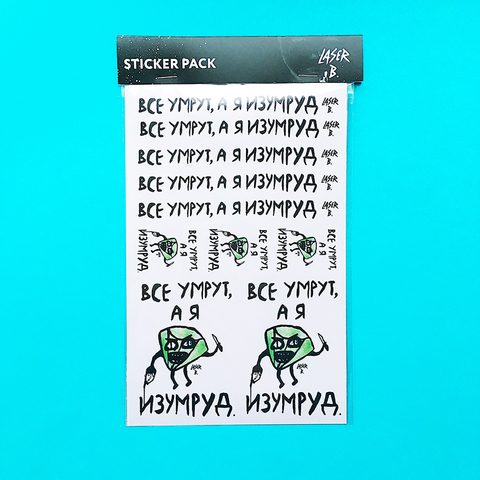 STICKER PACK
LASER
B.
ВСЕ УМРУТ, А Я ИЗУМРУД LASER B.
ВСЕ УМРУТ, А Я ИЗУМРУД LASER B.
ВСЕ УМРУТ, А Я ИЗУМРУД LASER B.
ВСЕ УМРУТ, А Я ИЗУМРУД LASER B.
ВСЕ УМРУТ, А Я ИЗУМРУД LASER B.
ВСЕ УМРУТ, А Я ИЗУМРУД.
ВСЕ УМРУТ, А Я ИЗУМРУД.
ВСЕ УМРУТ, А Я ИЗУМРУД.
ВСЕ УМРУТ, ВСЕ УМРУТ,
А Я А Я
LASER B. LASER B.
ИЗУМРУД. ИЗУМРУД.